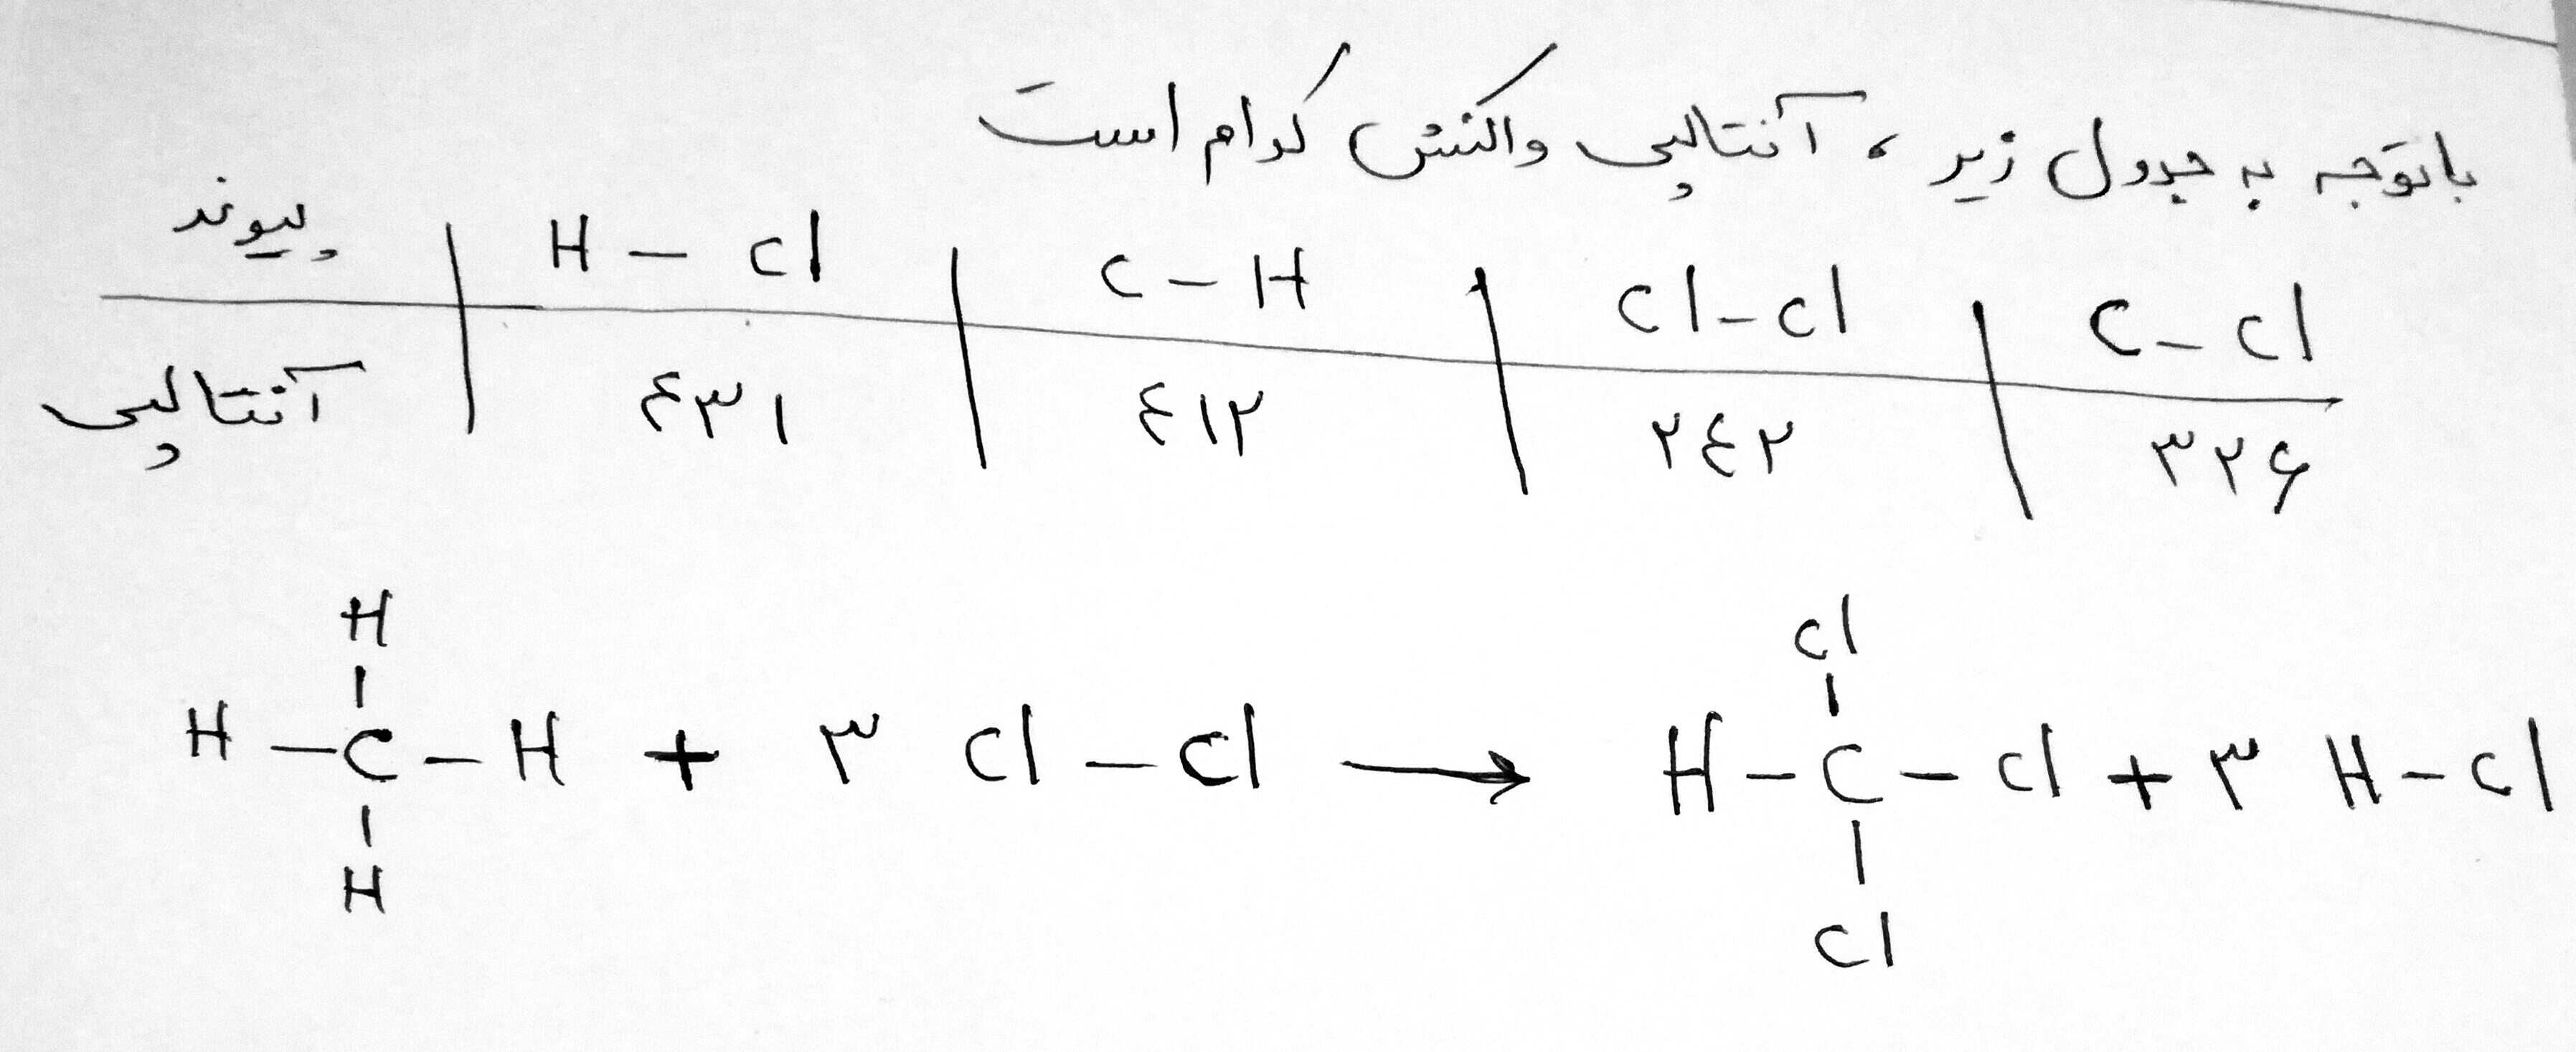 با توجه به جدول زیر، آنتالپی واکنش کدام است
پیوند | H – Cl | C – H | Cl – Cl | C – Cl
آنتالپی | ۴۳۱ | ۴۱۲ | ۲۴۲ | ۳۲۶
H Cl
H – C – H + ۳ Cl – Cl → H – C – Cl + ۳ H – Cl
H Cl